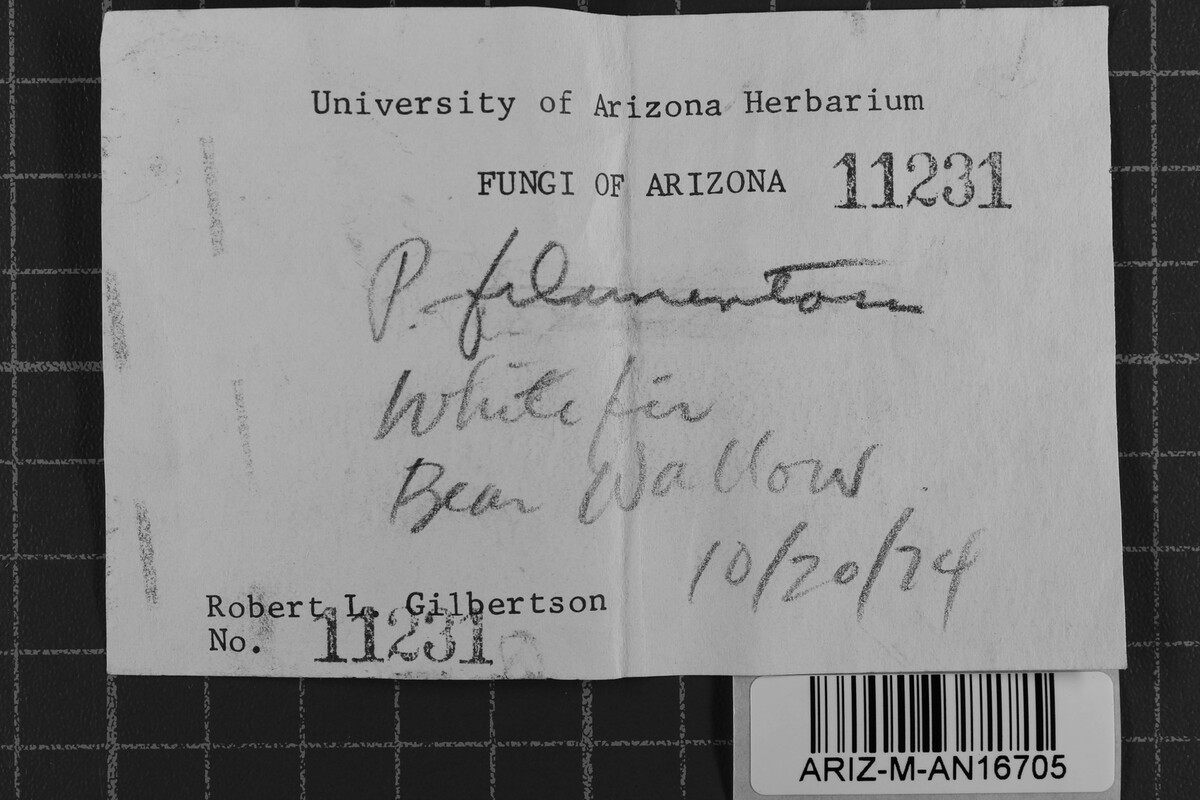 University of Arizona Herbarium
FUNGI OF ARIZONA 11231
P. filamentosa
White fir
Bear Wallow
10/20/74
Robert L. Gilbertson
No. 11231
ARIZ-M-AN16705